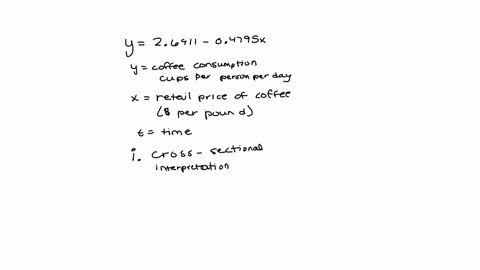 y = 2.6911 - 0.4795x
y = coffee consumption
cups per person per day
x = retail price of coffee
($ per pound)
t = time
i. cross-sectional
interpretation